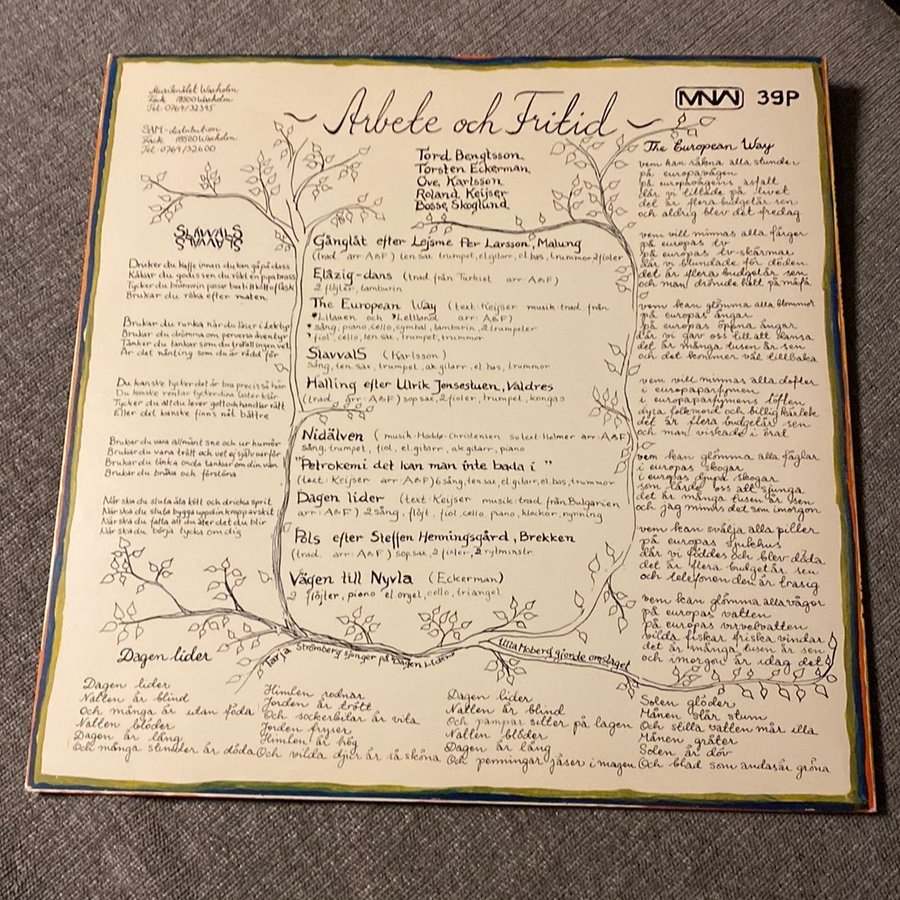 Musiknätet Waxholm
Fack 18500 Waxholm
Tel. 0764/32395
SAM-distribution
Fack 18500 Waxholm
Tel 0764/32600
~ Arbete och Fritid ~
MNW 39P
Tord Bengtsson
Torsten Eckerman
Ove Karlsson
Roland Keijser
Bosse Skoglund
Gånglåt efter Lejsme Per Larsson, Malung
(trad arr A&F) ten.sax trumpet, el.gitarr, el.bas, trummor 2 fioler
Elâzig-dans (trad. från Turkiet arr: A&F)
2 flöjter, tamburin
The European Way (text Keijser musik trad. från
*Litauen och *Lettland arr: A&F)
*sång, piano, cello, cymbal, tamburin, 2 trumpeter
*fiol, cello, ten sax, trumpet, trummor
SlavvalS (Karlsson)
Sång, ten.sax, trumpet, ak gitarr, el bas, trummor
Halling efter Ulrik Jonsestuen, Valdres
(trad arr A&F) sop sax, 2 fioler, trumpet, kongas
Nidälven (musik: Christensen sv. text: Helmer arr: A&F)
sång, trumpet, fiol, el gitarr, ak gitarr, piano
"Petrokemi det kan man inte bada i"
(text: Keijser arr A&F) 6 sång, ten sax, el gitarr, el.bas, trummor
Dagen lider (text: Keijser musik: trad från Bulgarien
arr: A&F) 2 sång, flöjt, fiol, cello, piano, klockor, nynning
Pols efter Steffen Henningsgård, Brekken
(trad. arr: A&F) sop sax, 2 fioler, 2 rytminstr.
Vägen till Nyvla (Eckerman)
2 flöjter, piano el orgel, cello, triangel
SLAVVALS
Dricker du kaffe innan du kan gå på dass
Köper du godis sen du rökt en pipa brass
Tycker du brännvin passar bra till kött o fläsk
Brukar du röka efter maten
Brukar du runka när du läser i
Brukar du drömma om perversa äventyr
Tänker du tankar som du
Är det nånting som du är rädd för
Du kanske tycker det är bra precis så här
Du kanske
Tycker du att du lever gott och handlar rätt
Eller det kanske finns nåt bättre
Brukar du vara allmänt sne och ur humör
Brukar du vara trött och vet ej själv varför
Brukar du tänka onda tankar om din vän
Brukar du bråka och förstöra
När ska du sluta äta kött och dricka sprit
När ska du sluta bygga upp din kropp av skit
När ska du fatta att du äter det du blir
När ska du börja tycka om dig
The European Way
vem kan räkna alla stunder
på europavägen
på europavägens asfalt
där vi litade på livet
det är flera budgetår sen
och aldrig blev det fredag
vem vill minnas alla färger
på europas tv
på europas tv-skärmar
där vi blundade för döden
det är flera budgetår sen
och man drönade bort på måfå
vem kan glömma alla blommor
på europas ängar
på europas öppna ängar
där vi gav oss till att dansa
det är många tusen år sen
och det kommer väl tillbaka
vem vill minnas alla dofter
i europaparfymen
i europaparfymens töften
dyra folkmord och billig kärlek
det är flera budgetår sen
och man viskade i örat
vem kan glömma alla fåglar
i europas skogar
i europas djupa skogar
som lärde oss att sjunga
det är många tusen år sen
och jag minns det som imorgon
vem kan svälja alla piller
på europas sjukhus
där vi föddes och blev döda
det är flera budgetår sen
och telefonen den är trasig
vem kan glömma alla vågor
på europas vatten
på europas virvelvatten
vilda fiskar friska vindar
det är många tusen år sen
och imorgon är idag det
Tarja Strömberg sjunger på Dagen lider
Ulla Moberg gjorde omslaget
Dagen lider
Dagen lider
Natten är blind
Och många är utan föda
Natten blöder
Dagen är lång
Och många stunder är döda
Himlen rodnar
Jorden är trött
Och sockerbitar är vita
Jorden fryser
Himlen är hög
Och vilda djur är så sköna
Dagen lider
Natten är blind
Och pampar sitter på lagen
Natten blöder
Dagen är lång
Och penningar jäser i magen
Solen glöder
Månen slår stum
Och stilla vatten mår illa
Månen gråter
Solen är döv
Och blad som andasår gröna